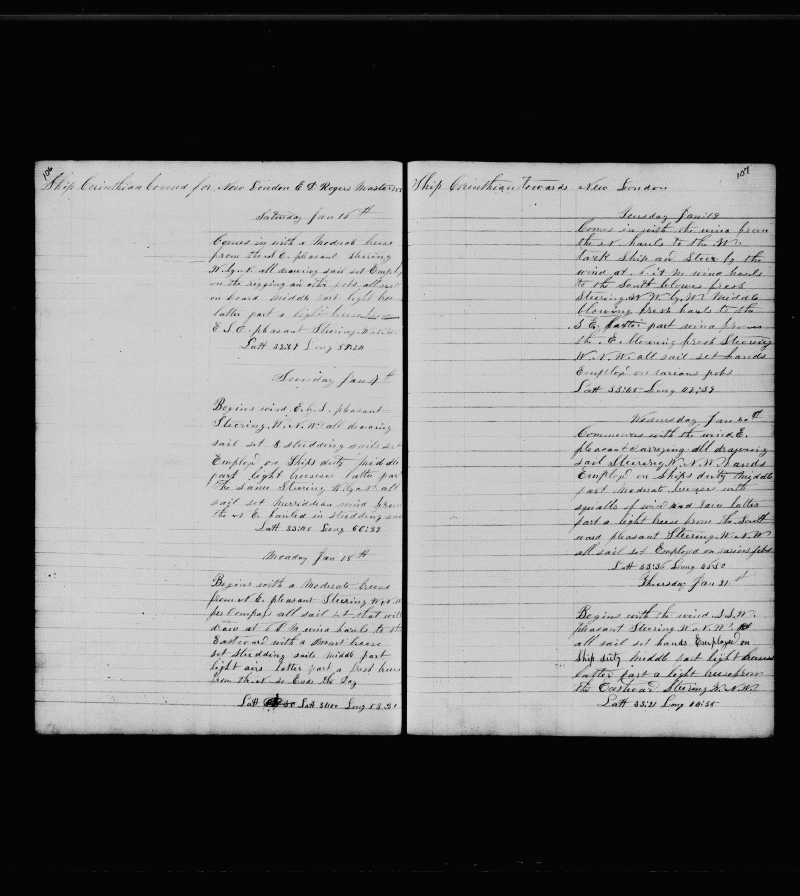 106
Ship Corinthian bound for New London E S Rogers Master
Saturday Jan 16th
Comes in with a Modrate breeze
from the S E. pleasant Steering
all drawing sail set Employ
on the rigging
on board middle part light breeze
latter part a light breeze from
E S E. pleasant Steering W.N.W.
Latt Long
Sunday Jan
Begins wind E. by S. pleasant
Steering W. N. W. all drawing
sail set & studding sails set
Employd on Ships duty middle
part light breeses latter part
the same Steering all
sail set merriddian wind from
the E hauled in studding
Latt Long
Monday Jan 18th
Begins with a Moderate breeze
from E. pleasant Steering W.N.W
per Compass all sail set that will
draw at P. M wind hauls to the
Eastward with a breeze
set Studding sails middle part
light airs latter part a breeze
from the so Ends the Day
Latt Long
107
Ship Corinthian towards New London
Tuesday Jan 19
Comes in with the wind from
the hauls to the
tack Ship an Steer by the
wind at P. M wind hauls
to the South blowes fresh
Steering W. by W. Middle
blowing fresh hauls to the
S E. latter part wind from
the E. blowing fresh Steering
W. N. W. all sail set hands
Employd on various jobs
Latt Long
Wednesday Jan 20th
Commences with the wind E.
pleasant carrying all drawing
sail Steering W. N. W hands
Employd on Ships duty Middle
part moderate breezes with
squalls of wind and rain latter
part a light breese from the South
ward pleasant Steering W.N.W
all sail set Employd on various jobs
Latt Long
Thursday Jan 21st
Begins with the wind S.S.W.
pleasant Steering W. N. W.
all sail set hands Employed on
Ship duty middle part light breeses
latter part a light breese from
the Eastward Steering W. N. W
Latt 33:21 Long